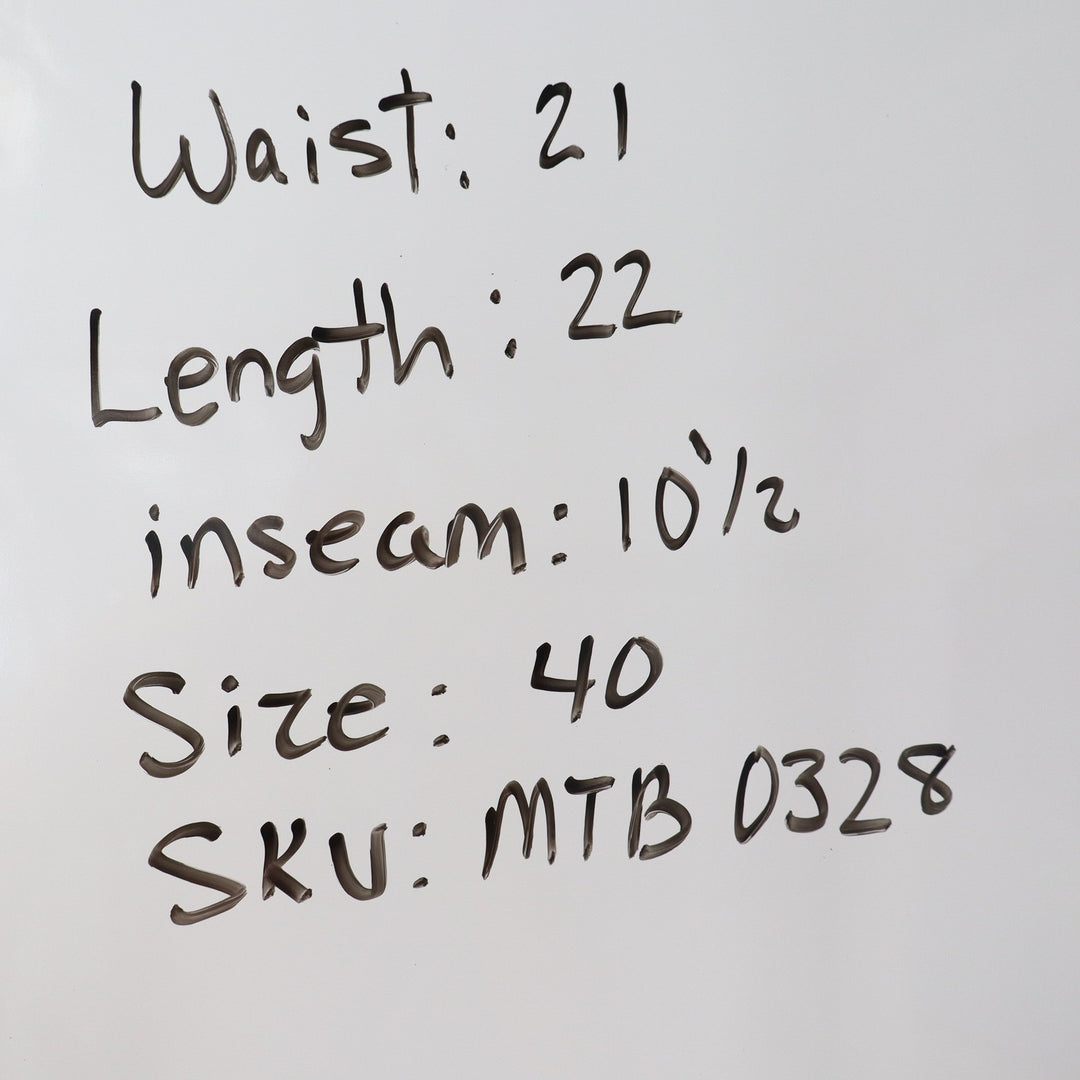 Waist: 21
Length: 22
inseam: 10 1/2
Size: 40
SKU: MTB 0328